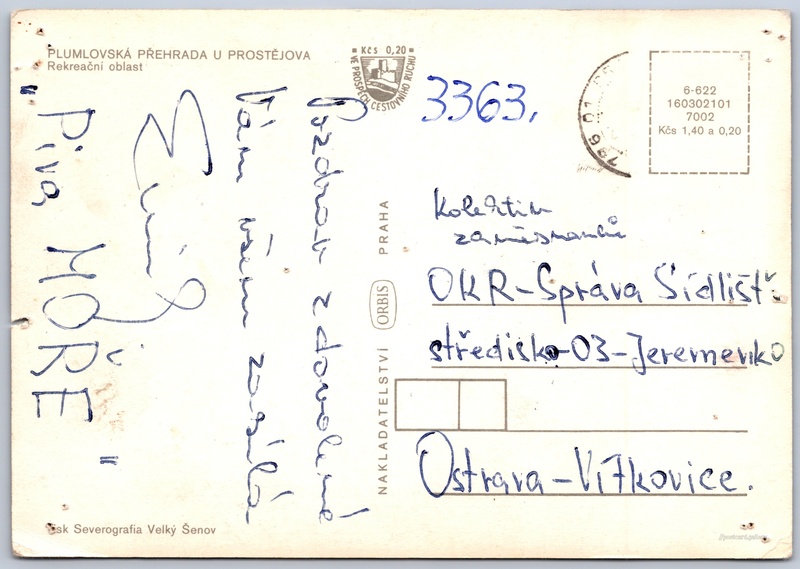 PLUMLOVSKÁ PŘEHRADA U PROSTĚJOVA
Rekreační oblast
Pozdrav z dovolené
Vám všem zasílá
"Piva MOŘE"
Kčs 0,20
VE PROSPĚCH CESTOVNÍHO RUCHU
3363.
6-622
160302101
7002
Kčs 1,40 a 0,20
796 01
Kolektiv
zaměstnanců
OKR-Správa Sídlišť
středisko-03-Jeremenko
Ostrava-Vítkovice.
NAKLADATELSTVÍ ORBIS PRAHA
Tisk Severografia Velký Šenov